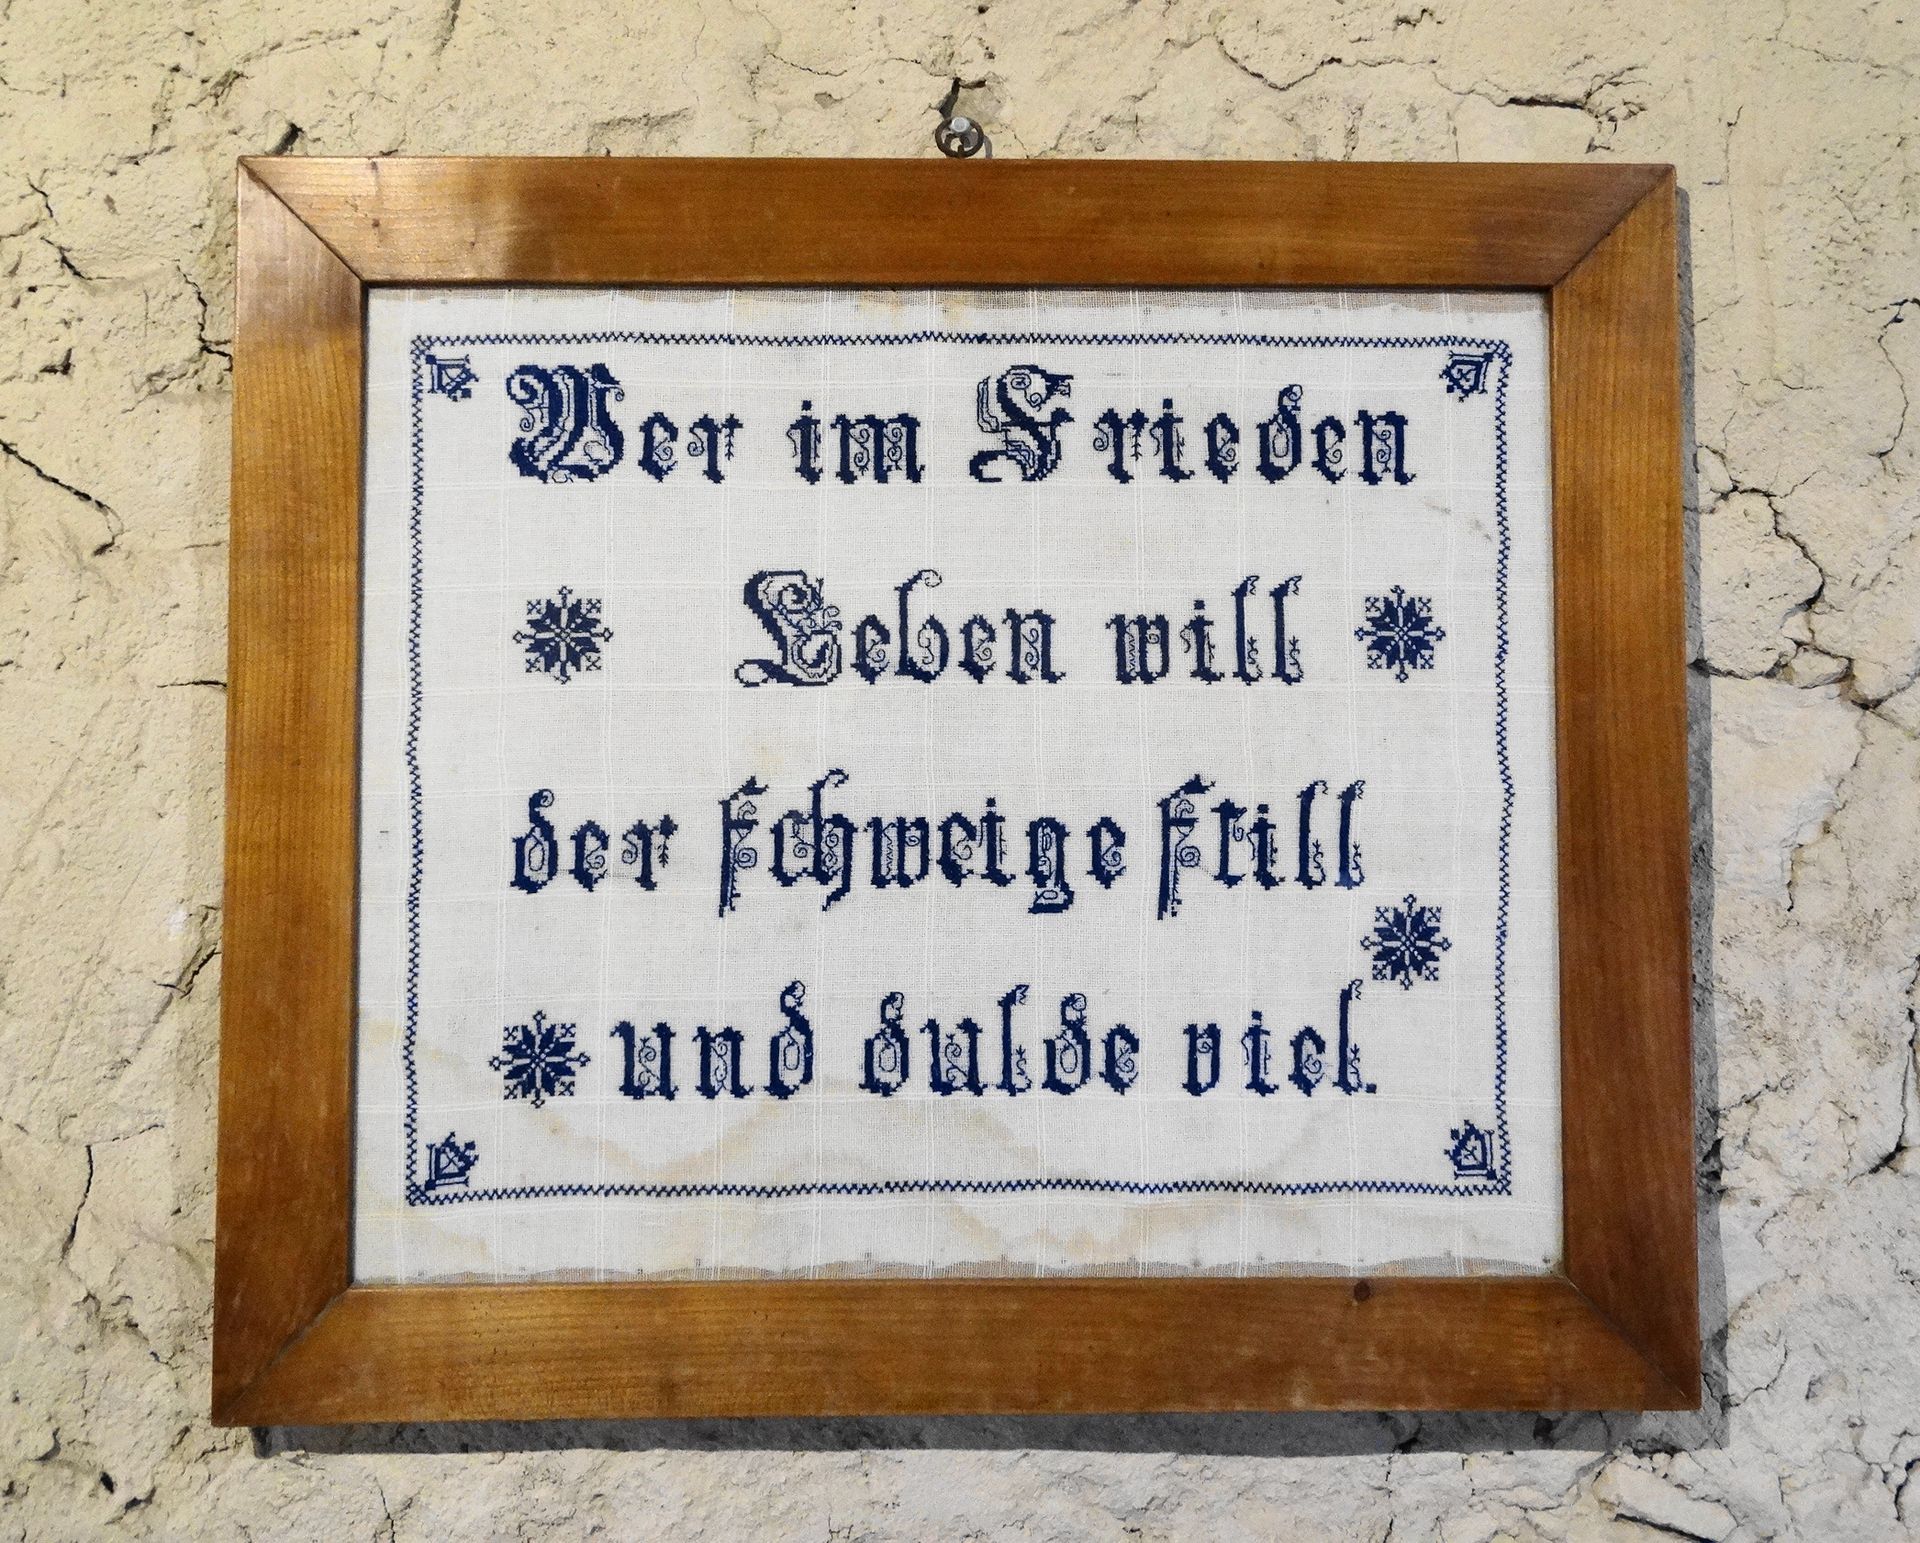 Wer im Frieden
Leben will
der ſchweige ſtill
und dulde viel.